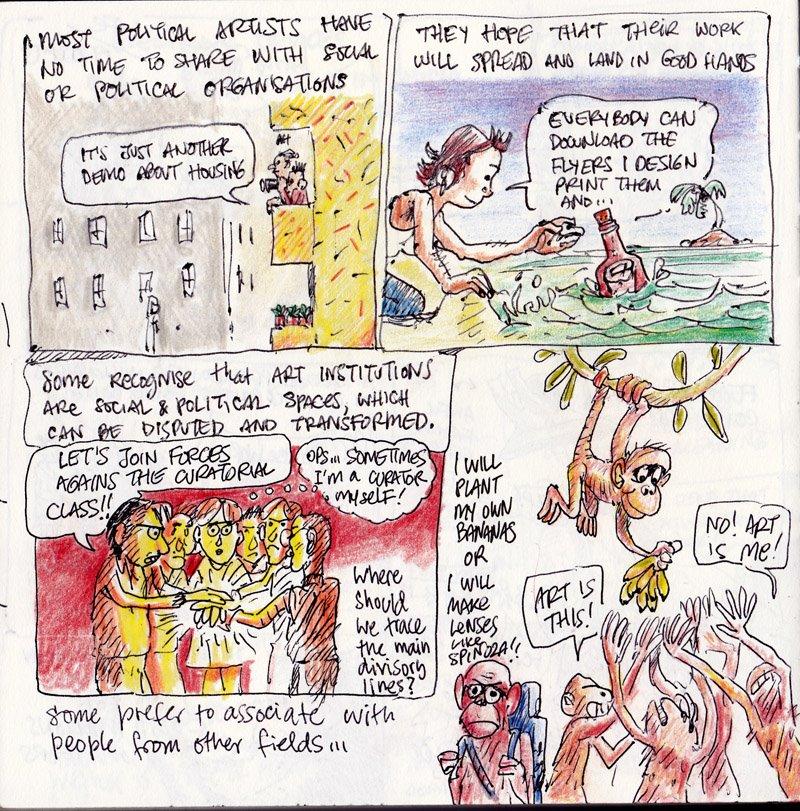 MOST POLITICAL ARTISTS HAVE
NO TIME TO SHARE WITH SOCIAL
OR POLITICAL ORGANISATIONS
IT'S JUST ANOTHER
DEMO ABOUT HOUSING
THEY HOPE THAT THEIR WORK
WILL SPREAD AND LAND IN GOOD HANDS
EVERYBODY CAN
DOWNLOAD THE
FLYERS I DESIGN
PRINT THEM
AND...
SOME RECOGNISE that ART INSTITUTIONS
ARE SOCIAL & POLITICAL SPACES, WHICH
CAN BE DISPUTED AND TRANSFORMED.
LET'S JOIN FORCES
AGAINS THE CURATORIAL
CLASS!!
OPS... SOMETIMES
I'M A CURATOR
MYSELF!
Where
should
we trace
the main
divisory
lines?
some prefer to associate with
people from other fields...
I WILL
PLANT
MY OWN
BANANAS
OR
I WILL
MAKE
LENSES
LIKE
SPINOZA!!
ART IS
THIS!
NO! ART
IS ME!